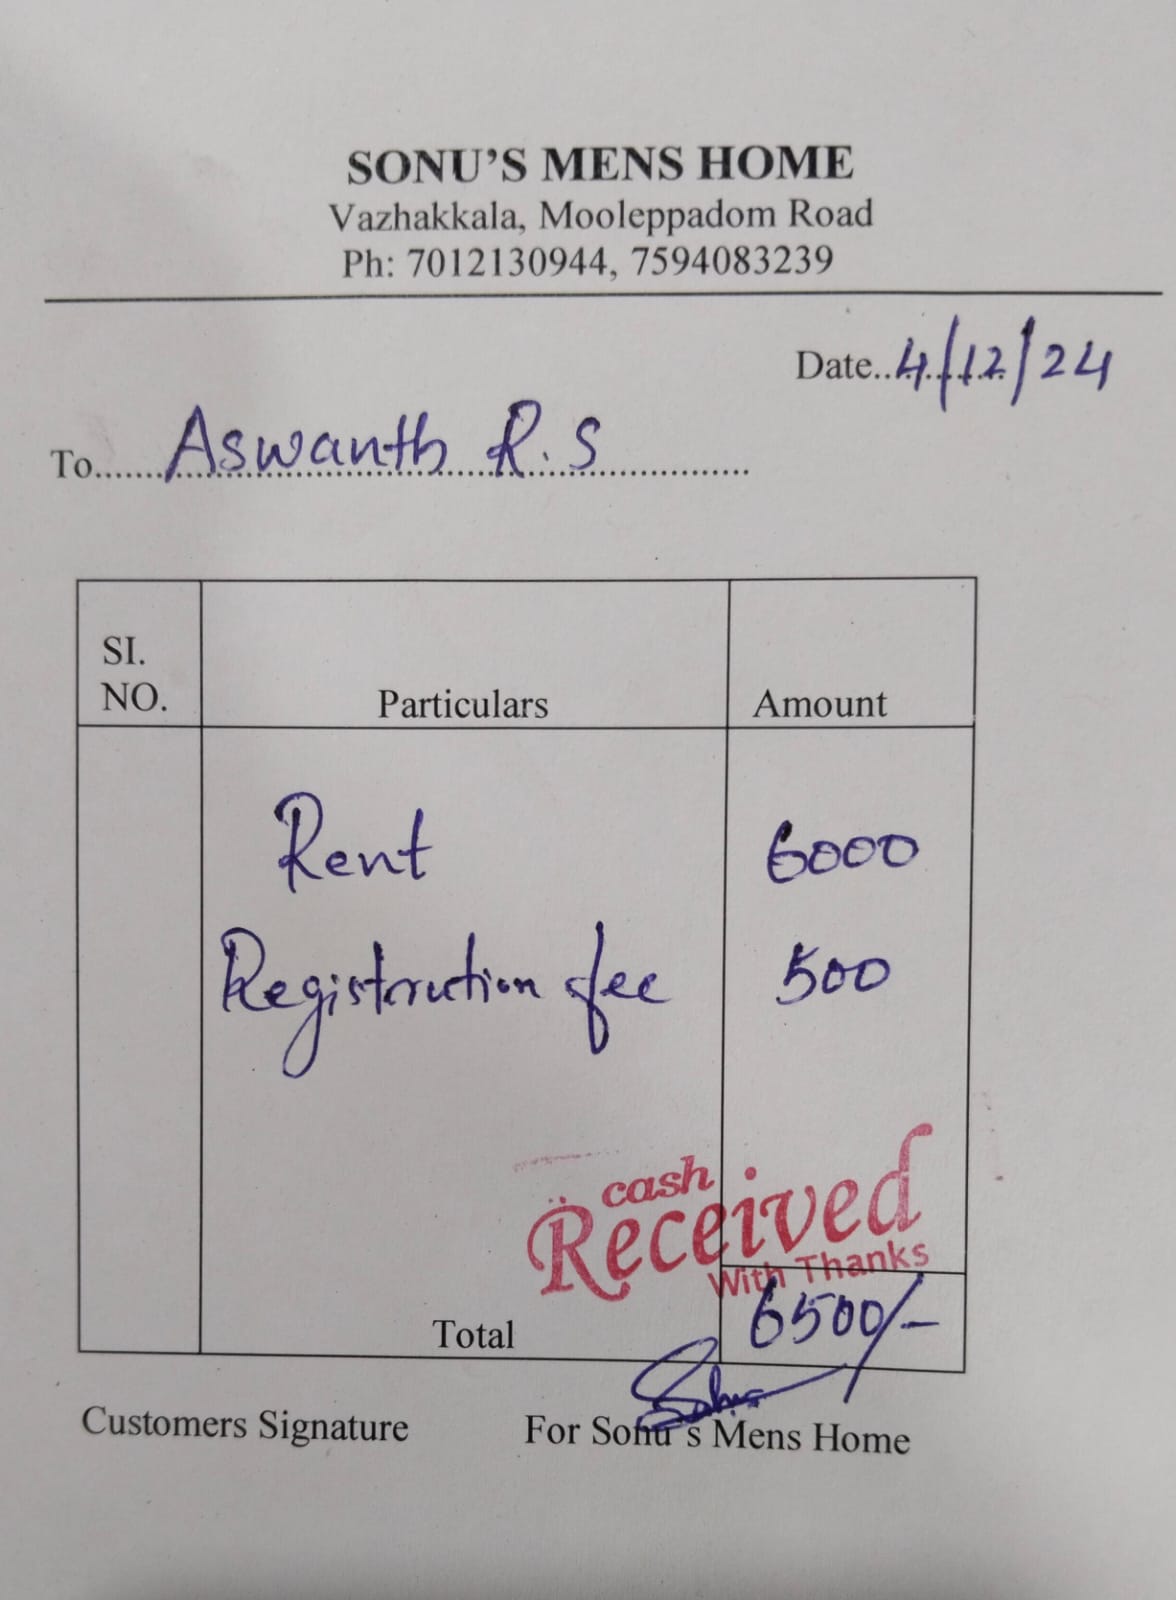 SONU'S MENS HOME
Vazhakkala, Mooleppadom Road
Ph: 7012130944, 7594083239
Date..4/12/24
To.......Aswanth R.S..................
SI. NO. Particulars Amount
Rent 6000
Registration fee 500
cash
Received
With Thanks
Total 6500/-
Customers Signature For Sonu's Mens Home